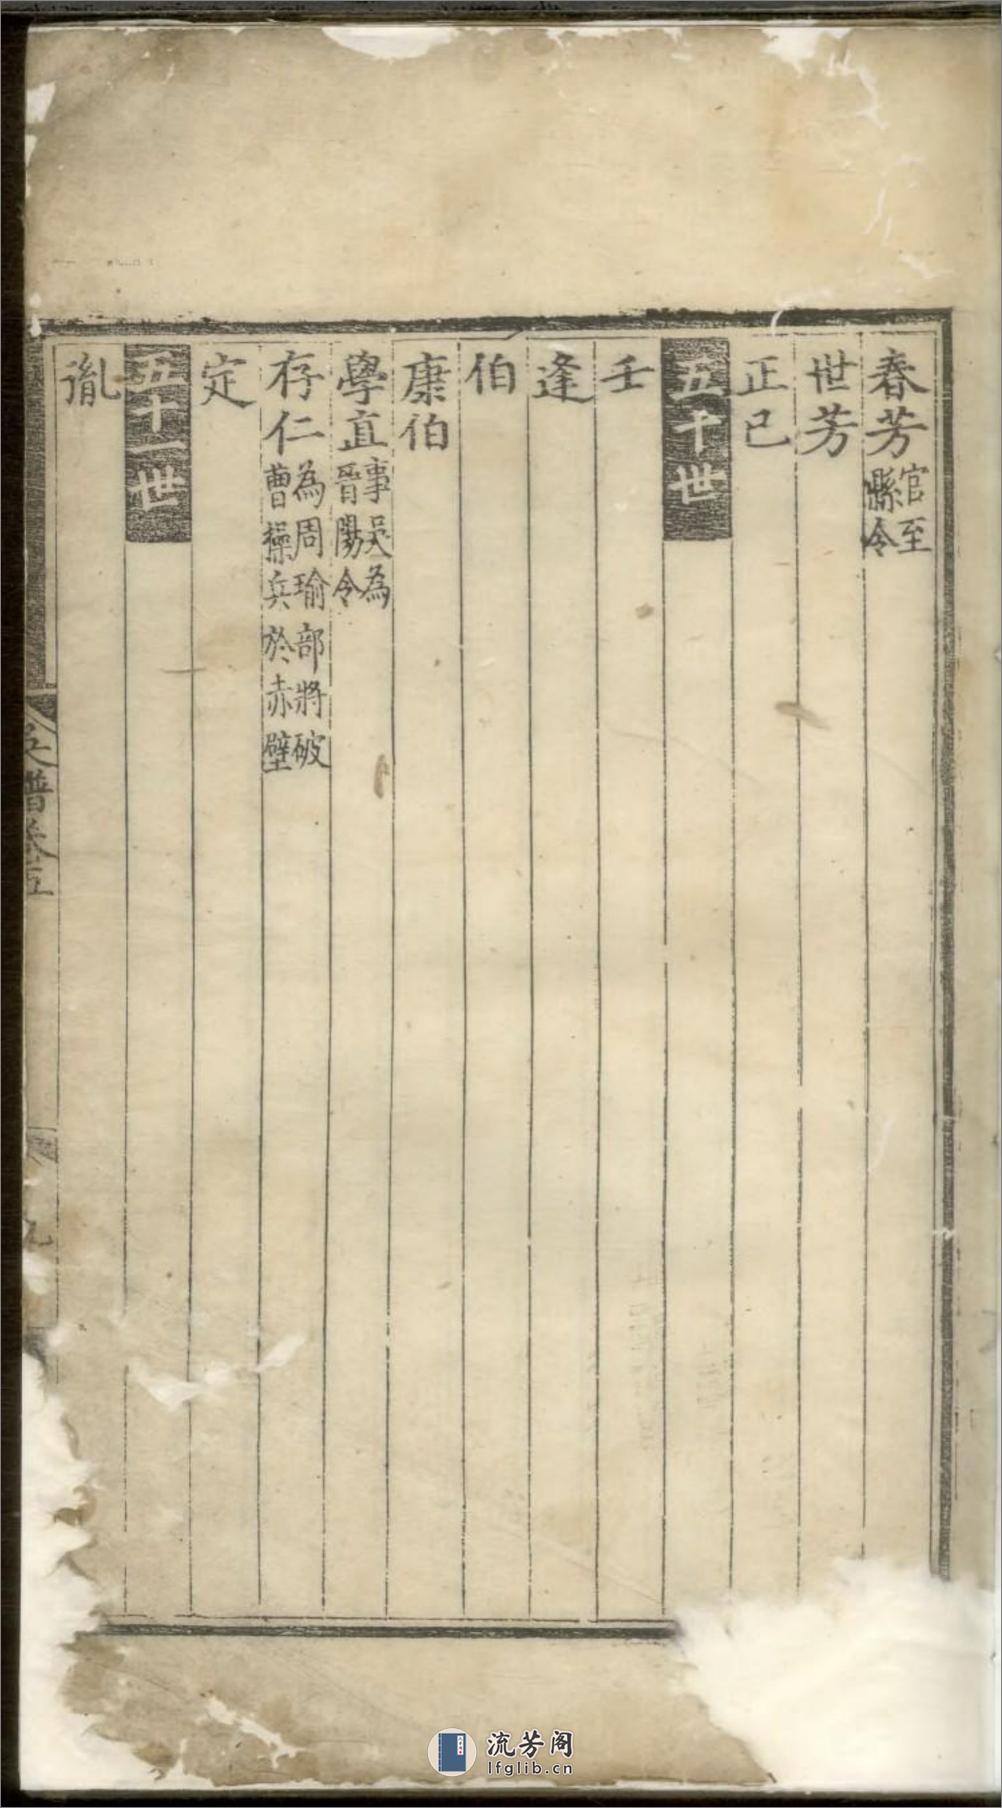 春芳官至縣令
世芳
正己
五十世
壬
逢
伯
康伯
學直事吳為晉陽令
存仁為周瑜部將破曹操兵於赤壁
定
五十一世
胤
譜卷五
九
流芳阁
lfglib.cn